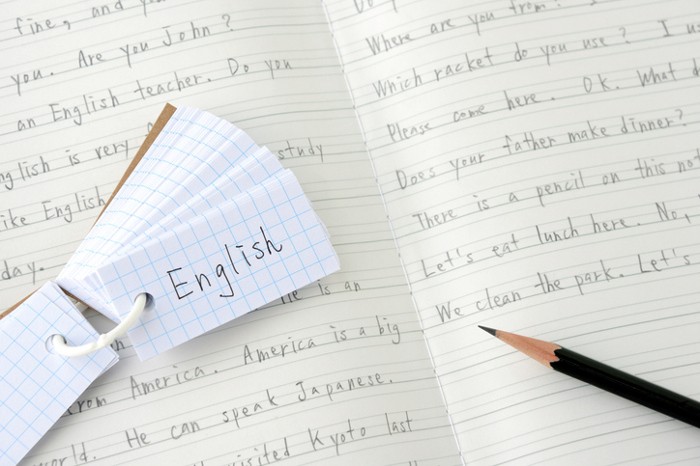 fine, and you?
you. Are you John?
an English teacher. Do you
English is very study
like English.
day.
is an
from America. America is a big
world. He can speak Japanese.
visited Kyoto last
English
Where are you from?
Which racket do you use? I
Please come here. OK. What
Does your father make dinner?
There is a pencil on this
Let's eat lunch here. No,
We clean the park. Let's